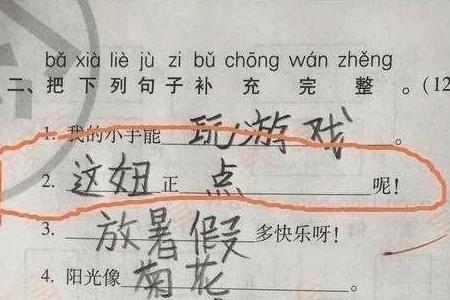 bǎ xià liè jù zi bǔ chōng wán zhěng
二、把下列句子补充完整。(12
1. 我的小手能玩游戏。
2. 这妞正点呢!
3. 放暑假多快乐呀!
4. 阳光像菊花。